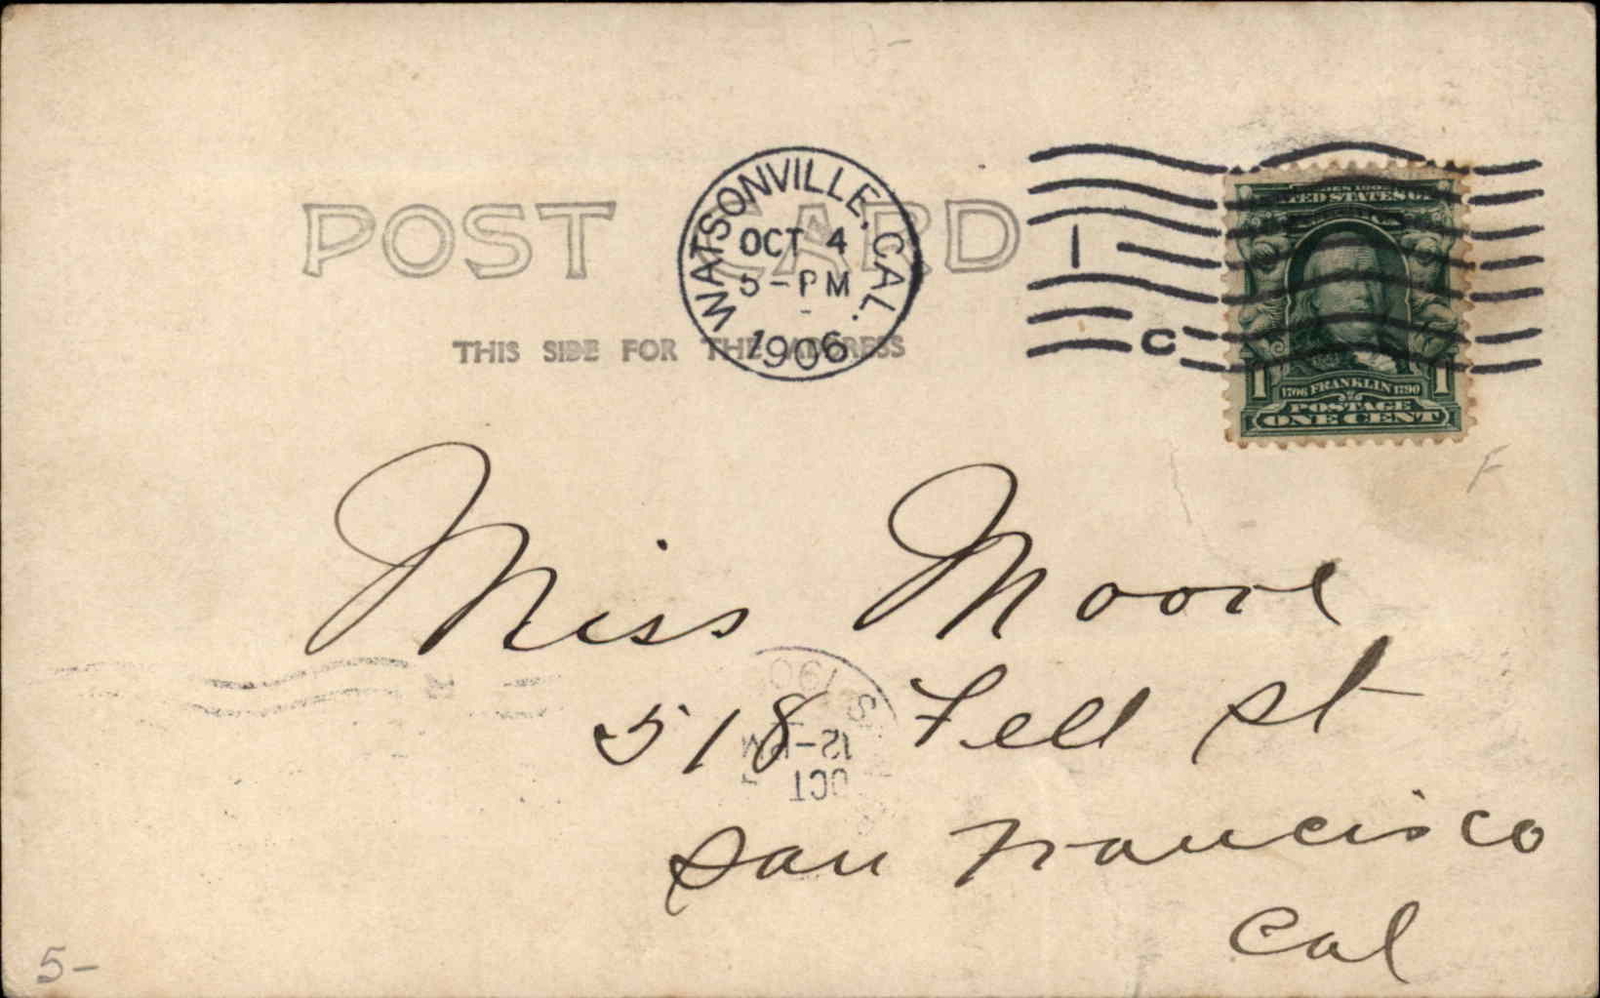 POST CARD
THIS SIDE FOR THE ADDRESS
WATSONVILLE, CAL.
OCT 4
5-PM
1906
1
C
SERIES 1902
UNITED STATES OF
1706 FRANKLIN 1790
POSTAGE
ONE CENT
1 1
F
Miss Moore
518 Fell St
San Francisco
Cal
OCT
12-PM
190
5-